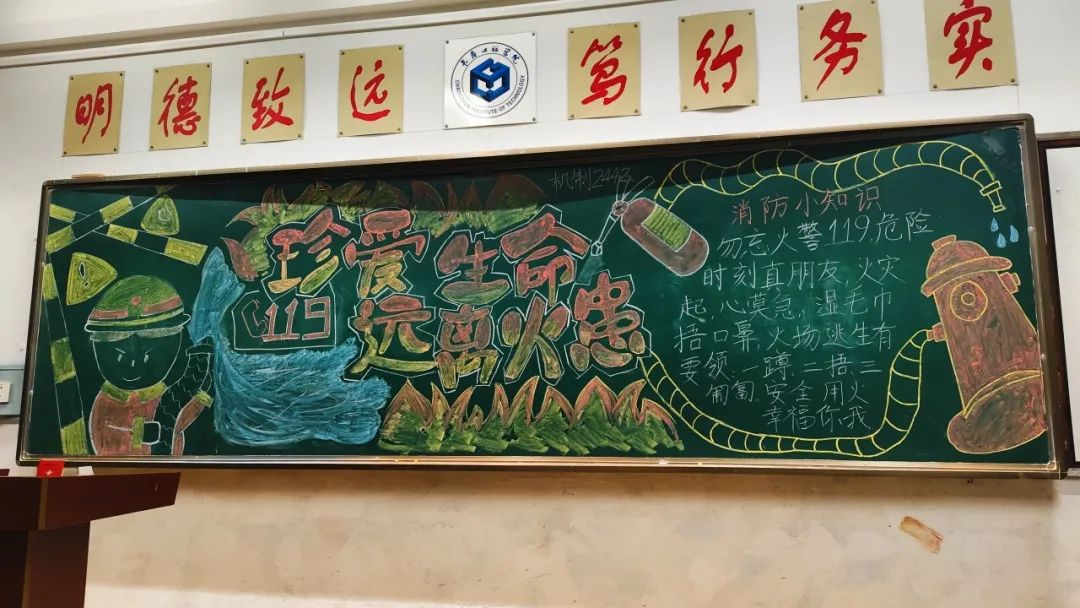 明德致远
长春工程学院
CHANGCHUN INSTITUTE OF TECHNOLOGY
笃行务实
机制2443
珍爱生命
119
远离火患
消防小知识
勿忘火警119,危险
时刻直朋友,火灾
起,心莫急,湿毛巾
捂口鼻,火场逃生有
要领,一蹲,二捂,三
匍匐,安全用火
幸福你我